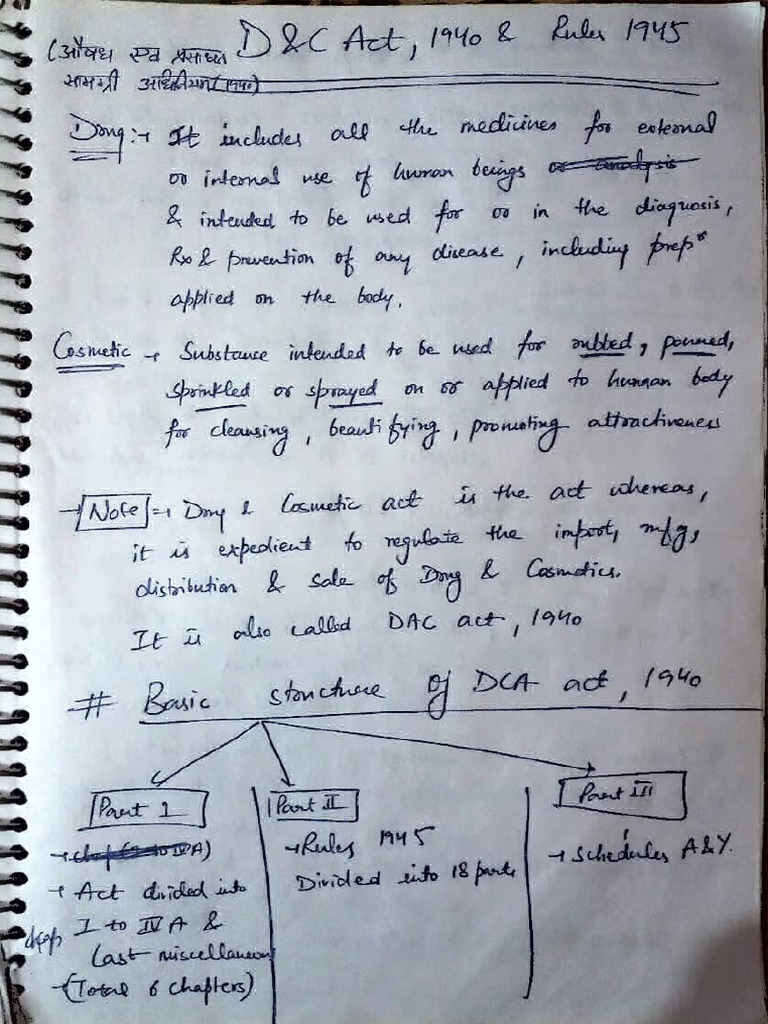 D&C Act, 1940 & Rules 1945
(औषध एवं प्रसाधन
सामग्री अधिनियम (1940)
Drug :→ It includes all the medicines for external
or internal use of human beings or analysis
& intended to be used for or in the diagnosis,
Rx & prevention of any disease, including prepⁿ
applied on the body.
Cosmetic → Substance intended to be used for rubbed, poured,
sprinkled or sprayed on or applied to human body
for cleansing, beautifying, promoting attractiveness
→ Note :→ Drug & Cosmetic act is the act whereas,
it is expedient to regulate the import, mfg,
distribution & sale of Drug & Cosmetics.
It is also called DAC act, 1940
# Basic structure of DCA act, 1940
Part 1
→ Act divided into
chap I to IV A &
Last miscellaneous
→ (Total 6 chapters)
Part II
→ Rules 1945
Divided into 18 parts
Part III
→ Schedules A&Y.